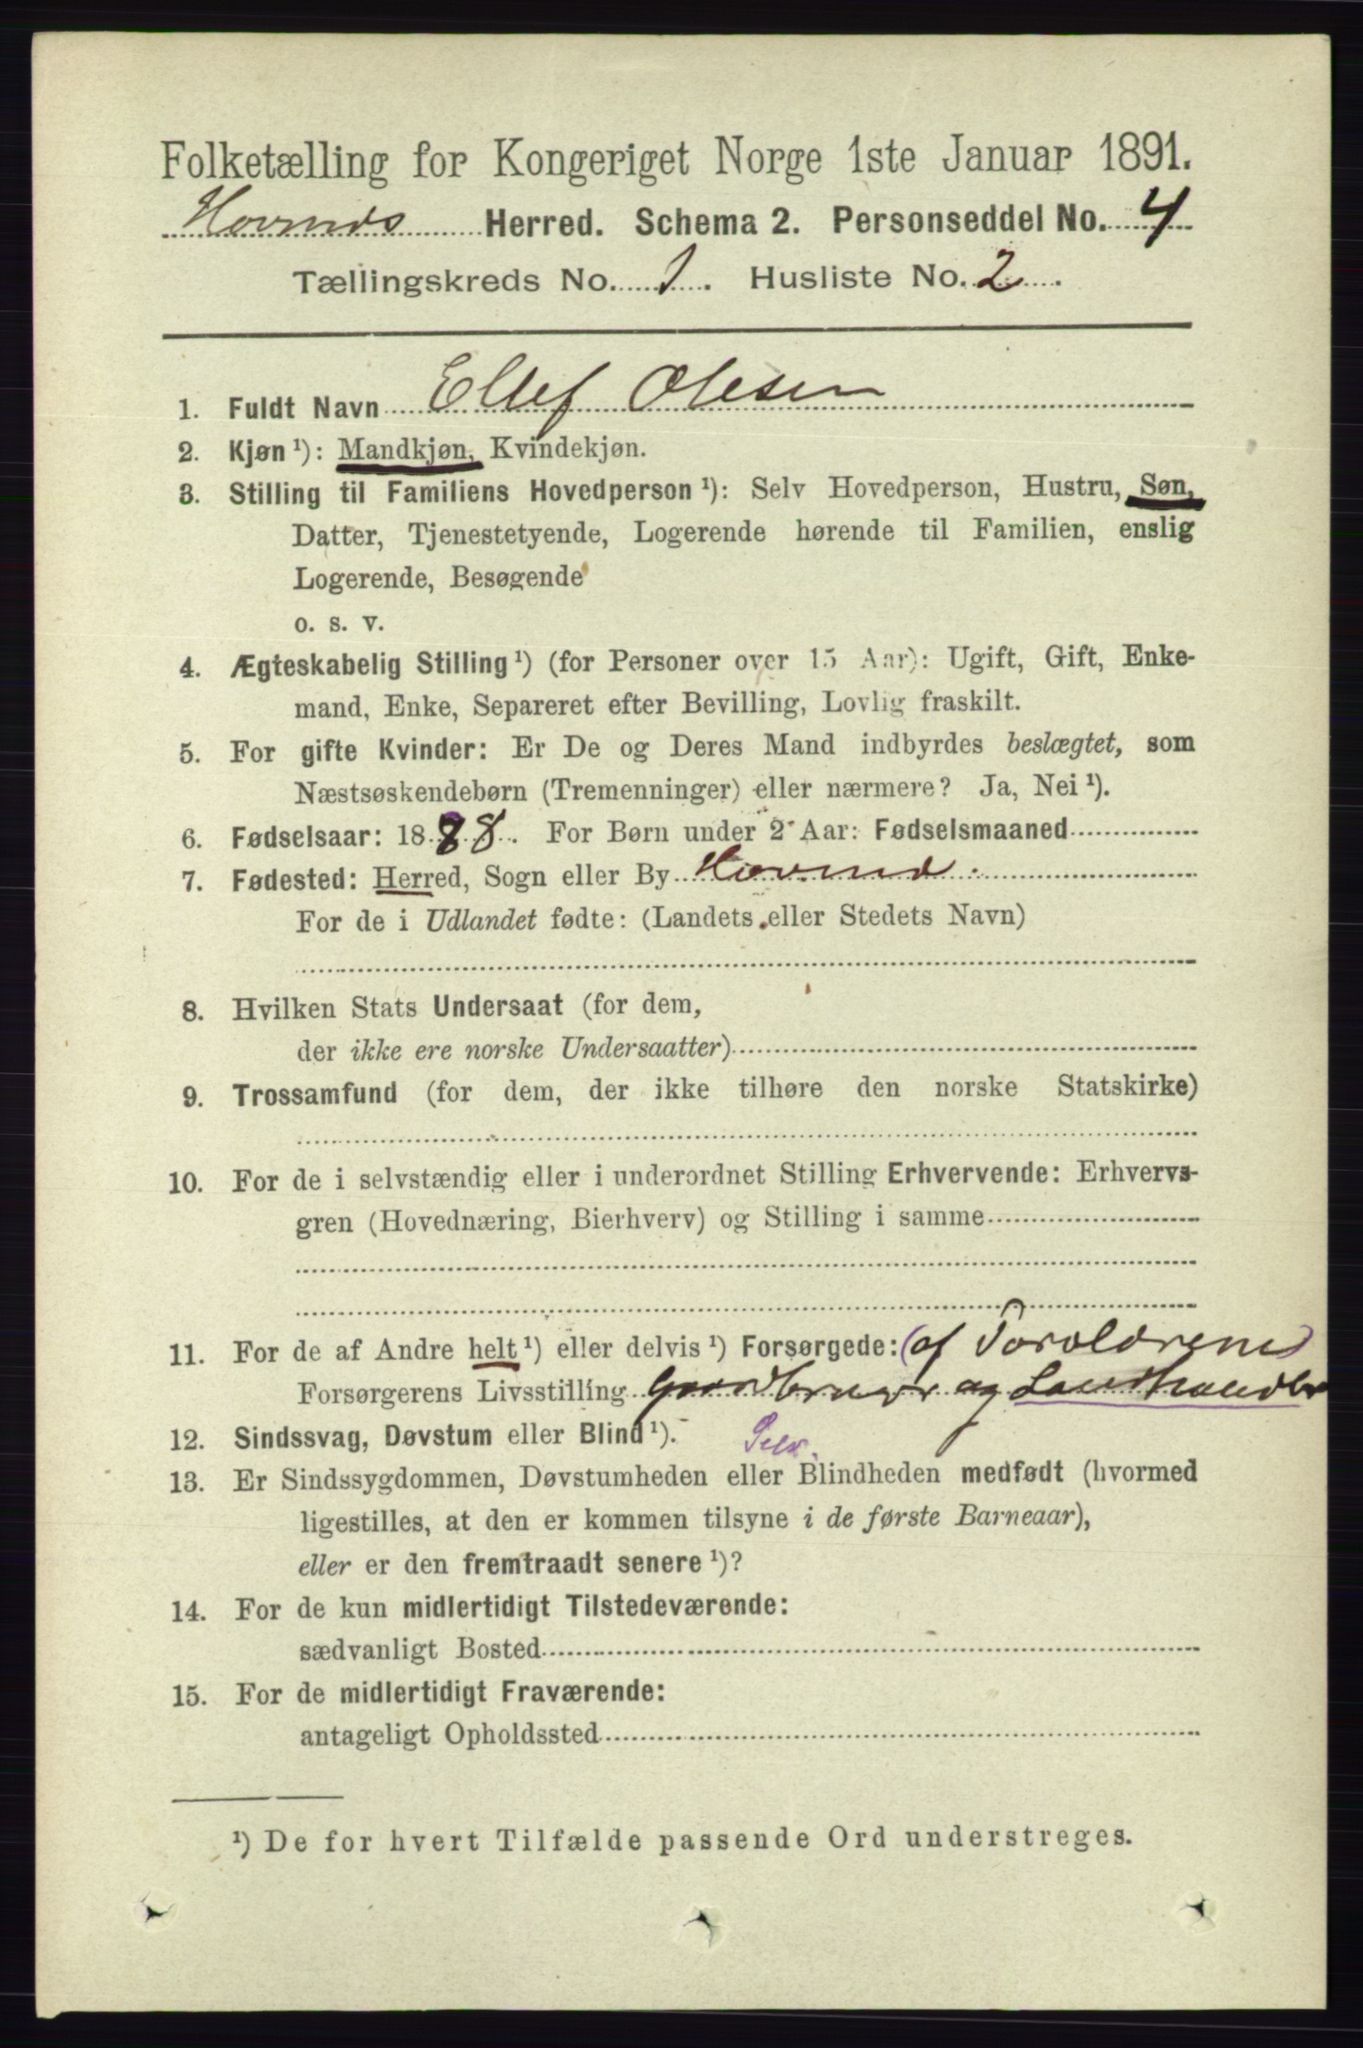 Folketælling for Kongeriget Norge 1ste Januar 1891.
Hovinds Herred. Schema 2. Personseddel No. 4
Tællingskreds No. 1. Husliste No. 2.
1. Fuldt Navn Ellef Olesen
2. Kjøn ¹): Mandkjøn, Kvindekjøn.
3. Stilling til Familiens Hovedperson ¹): Selv Hovedperson, Hustru, Søn,
Datter, Tjenestetyende, Logerende hørende til Familien, enslig
Logerende, Besøgende
o. s. v.
4. Ægteskabelig Stilling ¹) (for Personer over 15 Aar): Ugift, Gift, Enke-
mand, Enke, Separeret efter Bevilling, Lovlig fraskilt.
5. For gifte Kvinder: Er De og Deres Mand indbyrdes beslægtet, som
Næstsøskendebørn (Tremenninger) eller nærmere? Ja, Nei ¹).
6. Fødselsaar: 1888. For Børn under 2 Aar: Fødselsmaaned
7. Fødested: Herred, Sogn eller By Hovind.
For de i Udlandet fødte: (Landets eller Stedets Navn)
8. Hvilken Stats Undersaat (for dem,
der ikke ere norske Undersaatter)
9. Trossamfund (for dem, der ikke tilhøre den norske Statskirke)
10. For de i selvstændig eller i underordnet Stilling Erhvervende: Erhvervs-
gren (Hovednæring, Bierhverv) og Stilling i samme
11. For de af Andre helt ¹) eller delvis ¹) Forsørgede: (af Forældrene)
Forsørgerens Livsstilling Gaardbruger og Landhandler
12. Sindssvag, Døvstum eller Blind ¹). Selv.
13. Er Sindssygdommen, Døvstumheden eller Blindheden medfødt (hvormed
ligestilles, at den er kommen tilsyne i de første Barneaar),
eller er den fremtraadt senere ¹)?
14. For de kun midlertidigt Tilstedeværende:
sædvanligt Bosted
15. For de midlertidigt Fraværende:
antageligt Opholdssted
¹) De for hvert Tilfælde passende Ord understreges.